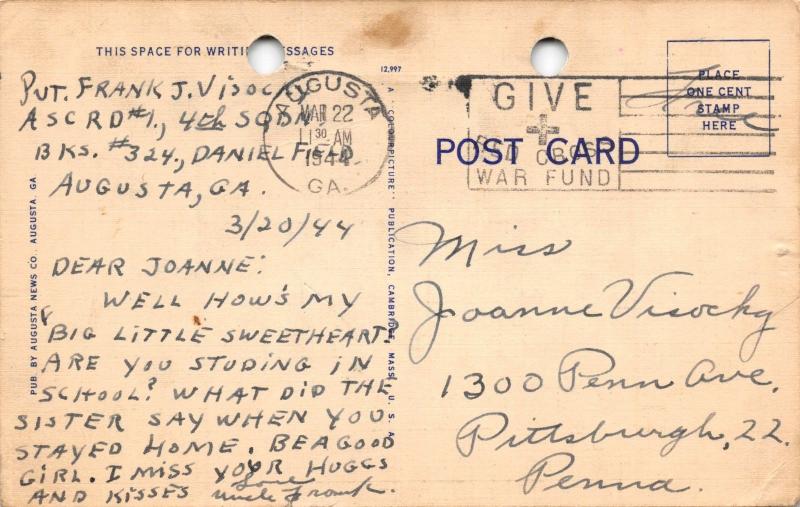 THIS SPACE FOR WRITI   ESSAGES
PVT. FRANK J. VISOC
ASCRD #1., 4th SQDN
BKS. #324., DANIEL FIELD
AUGUSTA, GA.
3/20/44
DEAR JOANNE:
WELL HOW'S MY
BIG LITTLE SWEETHEART,
ARE YOU STUDING IN
SCHOOL? WHAT DID THE
SISTER SAY WHEN YOU
STAYED HOME. BE A GOOD
GIRL. I MISS YOUR HUGGS
AND KISSES Love
Uncle Frank.
PUB. BY AUGUSTA NEWS CO., AUGUSTA, GA.
12,997
PUBLICATION, CAMBRIDGE, MASS., U. S. A.
AUGUSTA
MAR 22
11 30 AM
1944
GA.
GIVE
RED CROSS
WAR FUND
PLACE
ONE CENT
STAMP
HERE
Free
POST CARD
Miss
Joanne Visocky
1300 Penn Ave.
Pittsburgh, 22.
Penna.